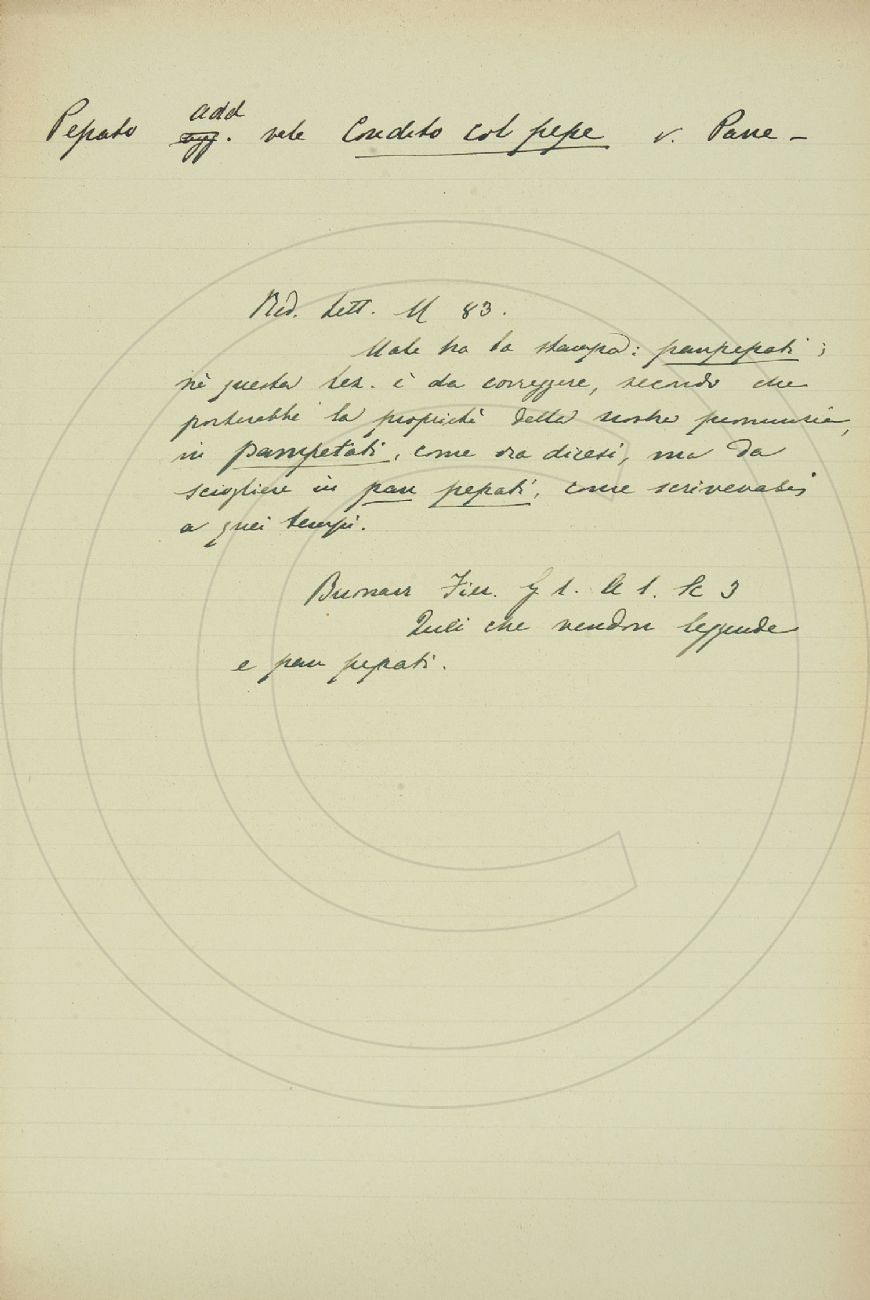 Pepato add. vale Condito col pepe v. Pane -
Red. Lett. M 83.
Male ha la stampa: panpepati;
nè questa lez. è da correggere, secondo che
porterebbe la propietà della nostra pronunzia,
in pampetati, come ora dicesi, ma da
sciogliere in pan pepati, come scrivevasi
a quei tempi.
Buonarr Fier. g 1. a 1. Sc 3
Quei che vendon leggende
e pan pepati.